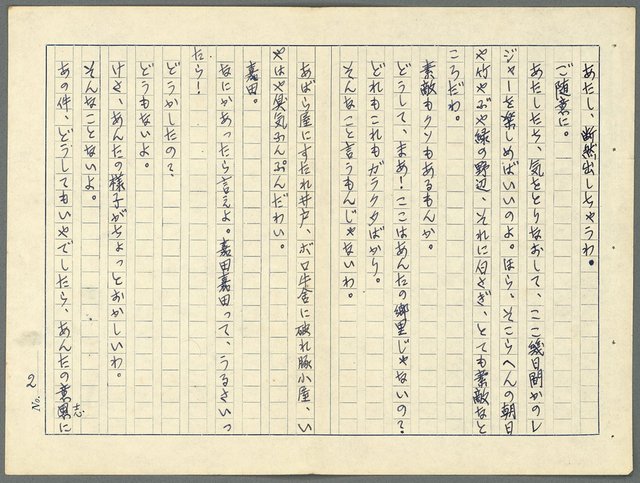 あたし、断然出しちゃうわ。
ご随意に。
あたしたち、気をとりなおして、ここ幾日間かのレ
ジャーを楽しめばいいのよ。ほら、そこらへんの朝日
や竹やぶや緑の野辺、それに白さぎ、とても素敵なと
ころだわ。
素敵もクソもあるもんか。
どうして、まあ！ここはあんたの郷里じゃないの？
どれもこれもガラクタばかり。
そんなこと言うもんじゃないわ。
あばら屋にすたれ井戸、ボロ牛舎に破れ豚小屋、い
やはや臭気ぷんぷんだわい。
嘉田。
なにかあったら言えよ。嘉田嘉田って、うるさいっ
たら！
どうかしたの？
どうもないよ。
けさ、あんたの様子がちょっとおかしいわ。
そんなことないよ。
あの件、どうしてもいやでしたら、あんたの意志に
No. 2